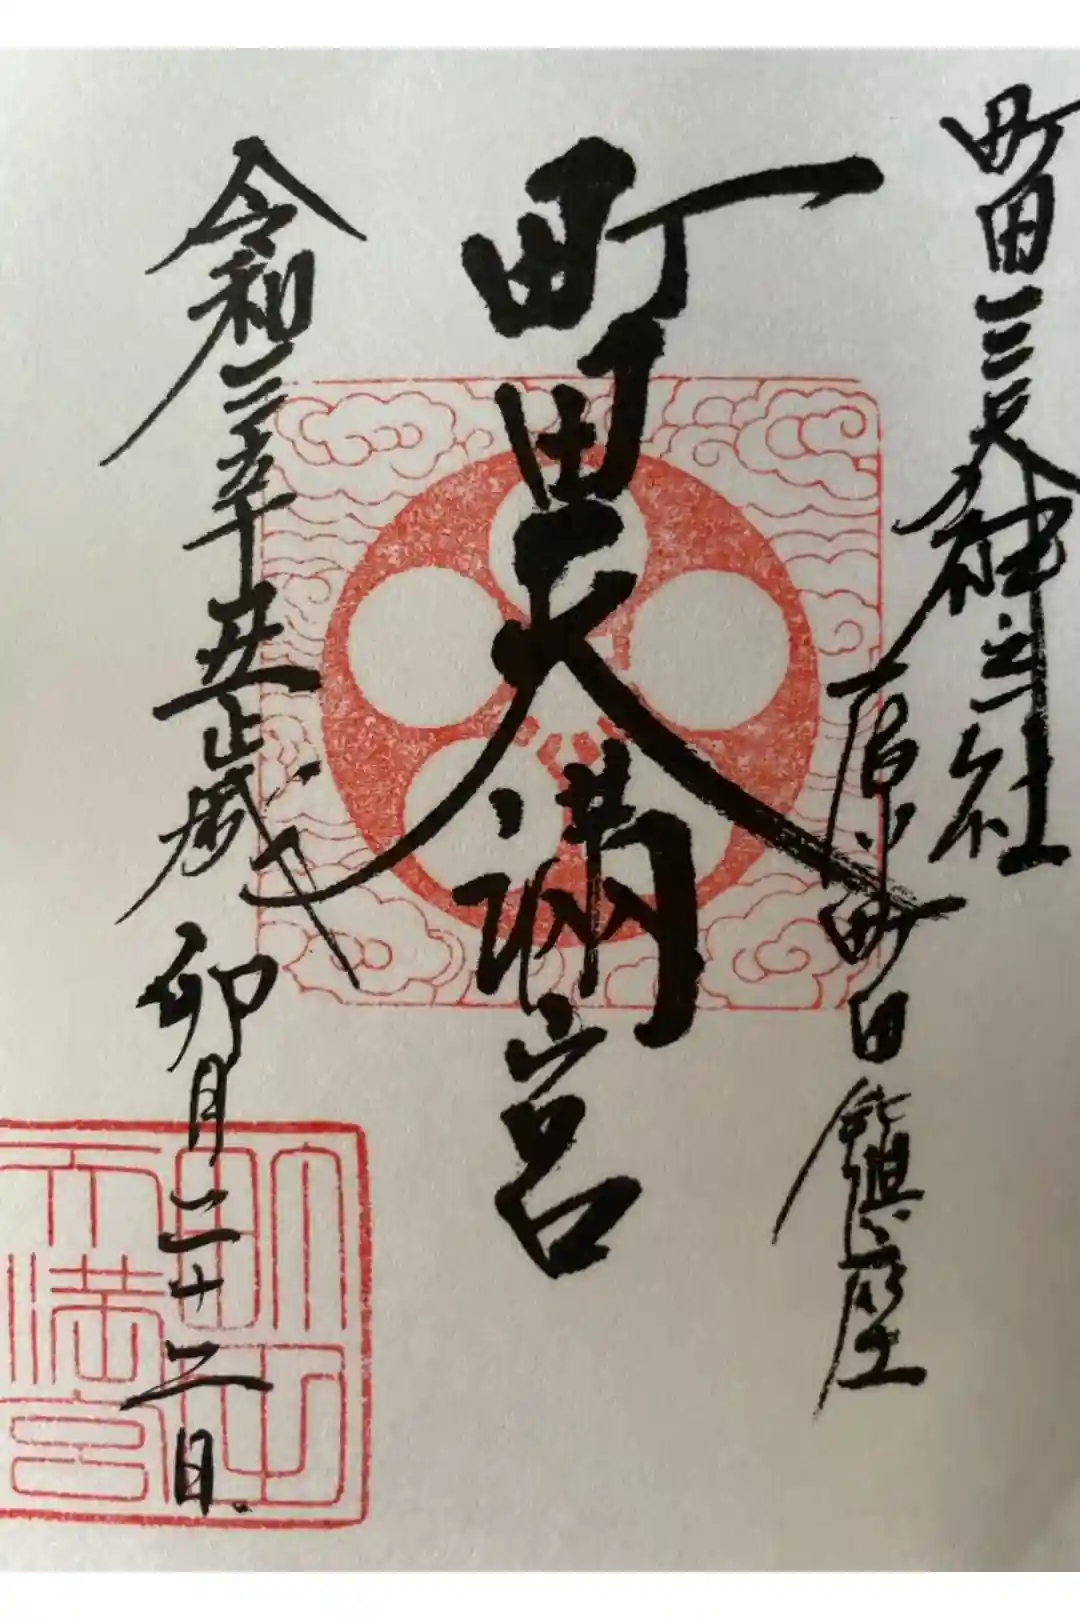 町田三天神之社
原町田鎮座
町田天満宮
令和三年丑歳卯月二十二日
町田天満宮